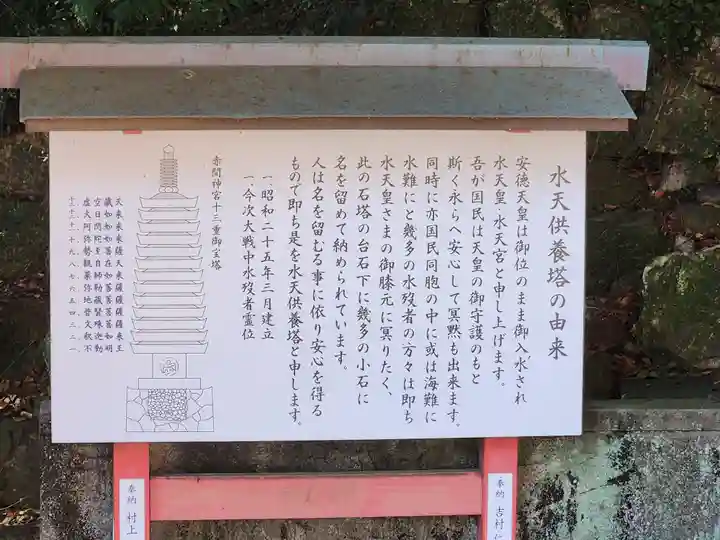 水天供養塔の由来
安徳天皇は御位のまま御入水され
水天皇・水天宮と申し上げます。
吾が国民は天皇の御守護のもと
斯く永らへ安心して冥黙も出来ます。
同時に亦国民同胞の中に或は海難に
水難にと幾多の水歿者の方々は即ち
水天皇さまの御膝元に冥りたく、
此の石塔の台石下に幾多の小石に
名を留めて納められています。
人は名を留むる事に依り安心を得る
もので即ち是を水天供養塔と申します。
一、昭和二十五年三月建立
一、今次大戦中水歿者霊位
赤間神宮十三重御宝塔
一不動明王
二釈迦如来
三文殊菩薩
四普賢菩薩
五地蔵菩薩
六弥勒菩薩
七薬師如来
八観自在天
九勢至菩薩
十弥陀如来
十一阿閦如来
十二大日如来
十三虚空蔵天
奉納 吉村
奉納 村上